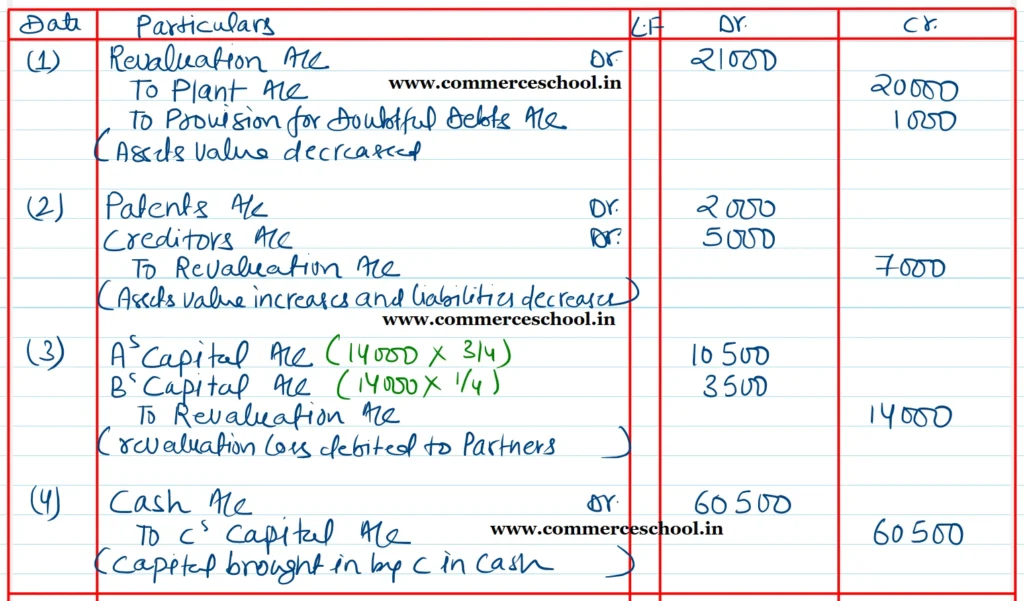 Date Particulars L.F Dr. Cr.
(1) Revaluation A/c Dr. 21000
www.commerceschool.in
To Plant A/c 20000
To Provision for Doubtful Debts A/c 1000
(Assets value decreased
(2) Patents A/c Dr. 2000
Creditors A/c Dr. 5000
To Revaluation A/c 7000
(Assets value increases and liabilities decreases)
www.commerceschool.in
(3) A's Capital A/c (14000 x 3/4) 10500
B's Capital A/c (14000 x 1/4) 3500
To Revaluation A/c 14000
(revaluation loss debited to Partners)
(4) Cash A/c Dr. 60500
To C's Capital A/c 60500
www.commerceschool.in
(Capital brought in by C in cash)